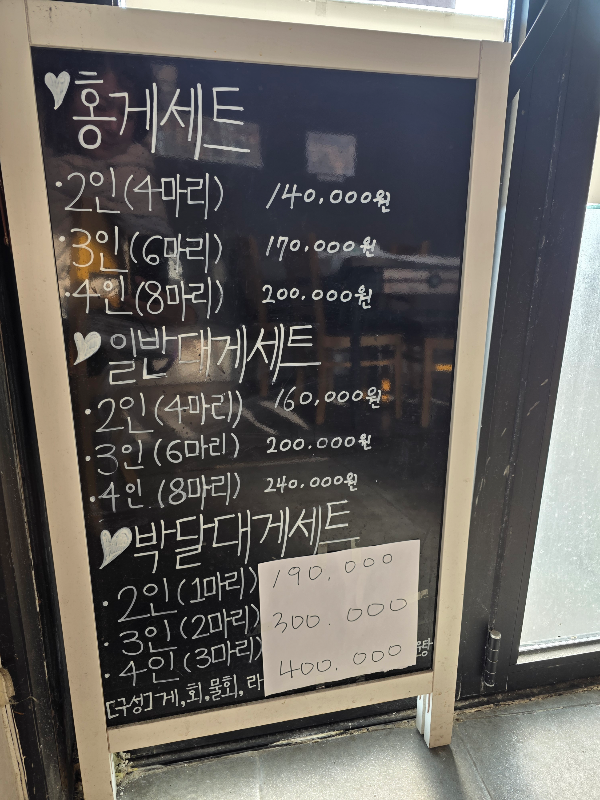 홍게세트
·2인(4마리) 140,000원
·3인(6마리) 170,000원
·4인(8마리) 200.000원
일반대게세트
·2인(4마리) 160,000원
·3인(6마리) 200.000원
·4인(8마리) 240.000원
박달대게세트
·2인(1마리) 190.000
·3인(2마리) 300.000
·4인(3마리) 400.000
[구성]게,회,물회,라